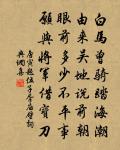 白馬曾騎踏海潮
由來吳地說前朝
眼前多少不平事
願與將軍借寶刀
唐寅題伍子胥廟壁